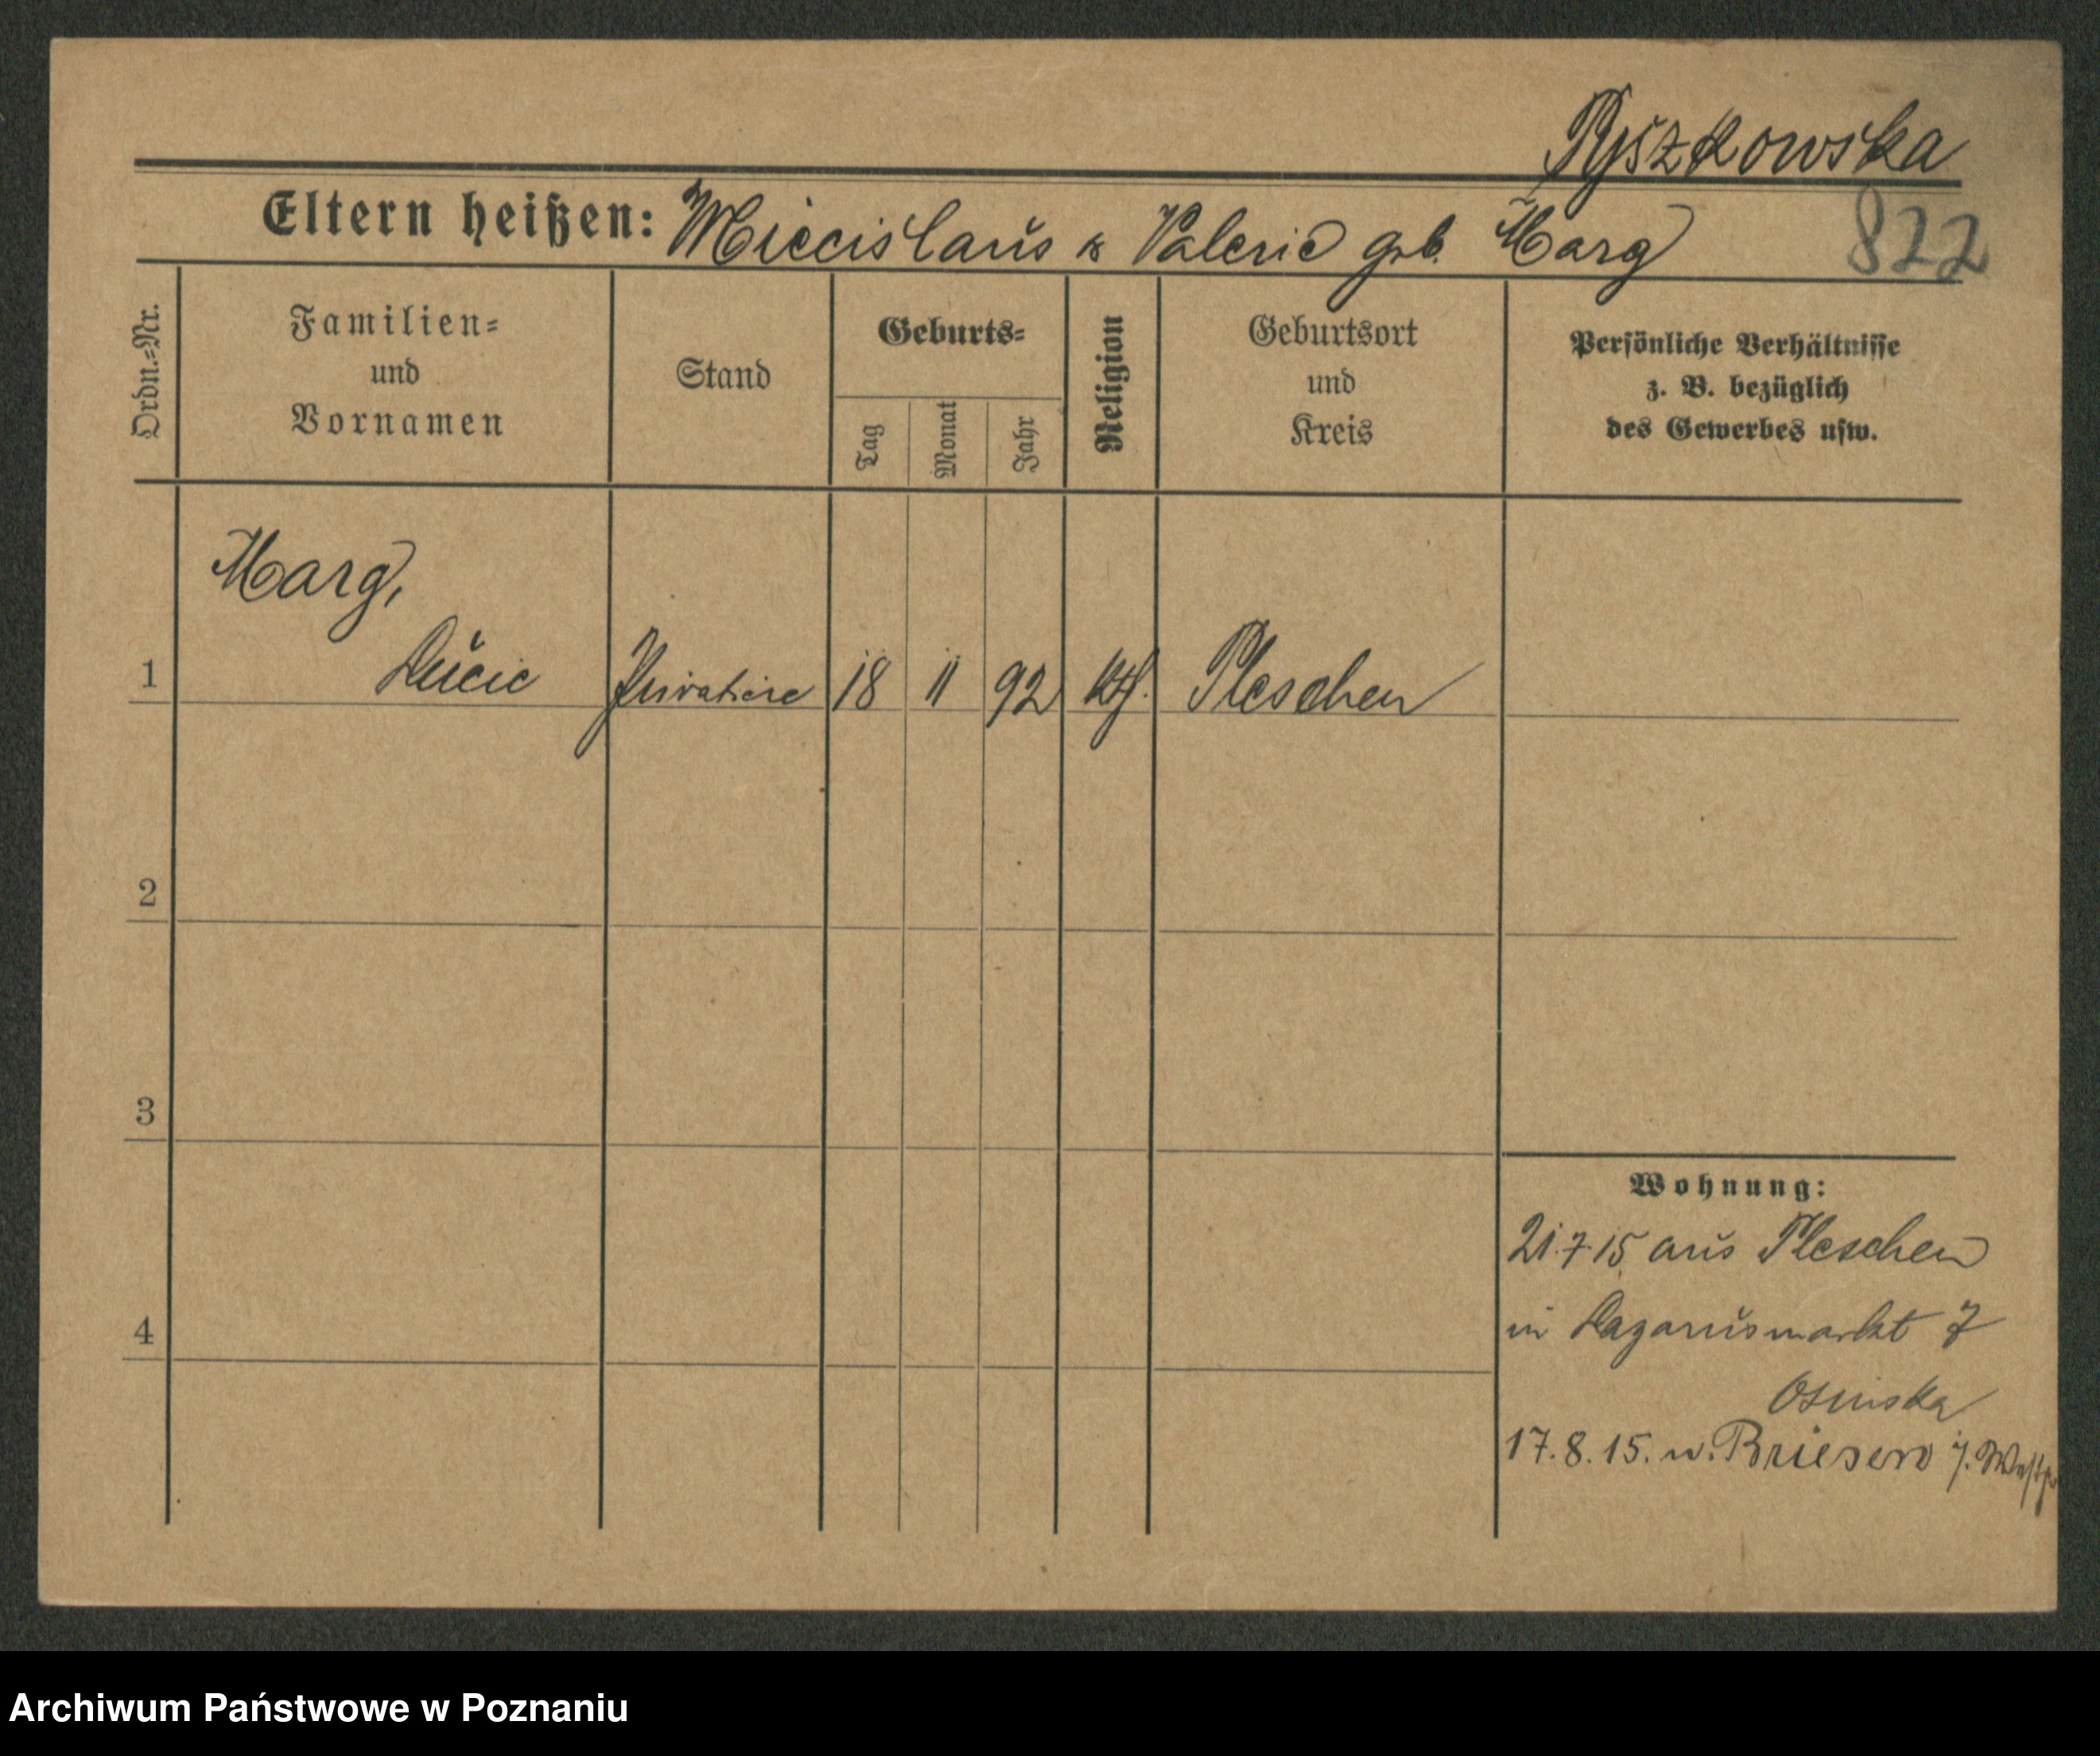 Ryszkowska
Eltern heißen: Miecislaus & Valerie geb. Marg
822
Ordn.=Nr.
Familien=
und
Vornamen
Stand
Geburts=
Tag
Monat
Jahr
Religion
Geburtsort
und
Kreis
Persönliche Verhältnisse
z. B. bezüglich
des Gewerbes usw.
Marg,
1 Lucie Privatiere 18 11 92 kth. Pleschen
2
3
4
Wohnung:
21.7.15 aus Pleschen
in Lazarusmarkt 7
Osinska
17.8.15. n. Briesen i. Westpr
Archiwum Państwowe w Poznaniu